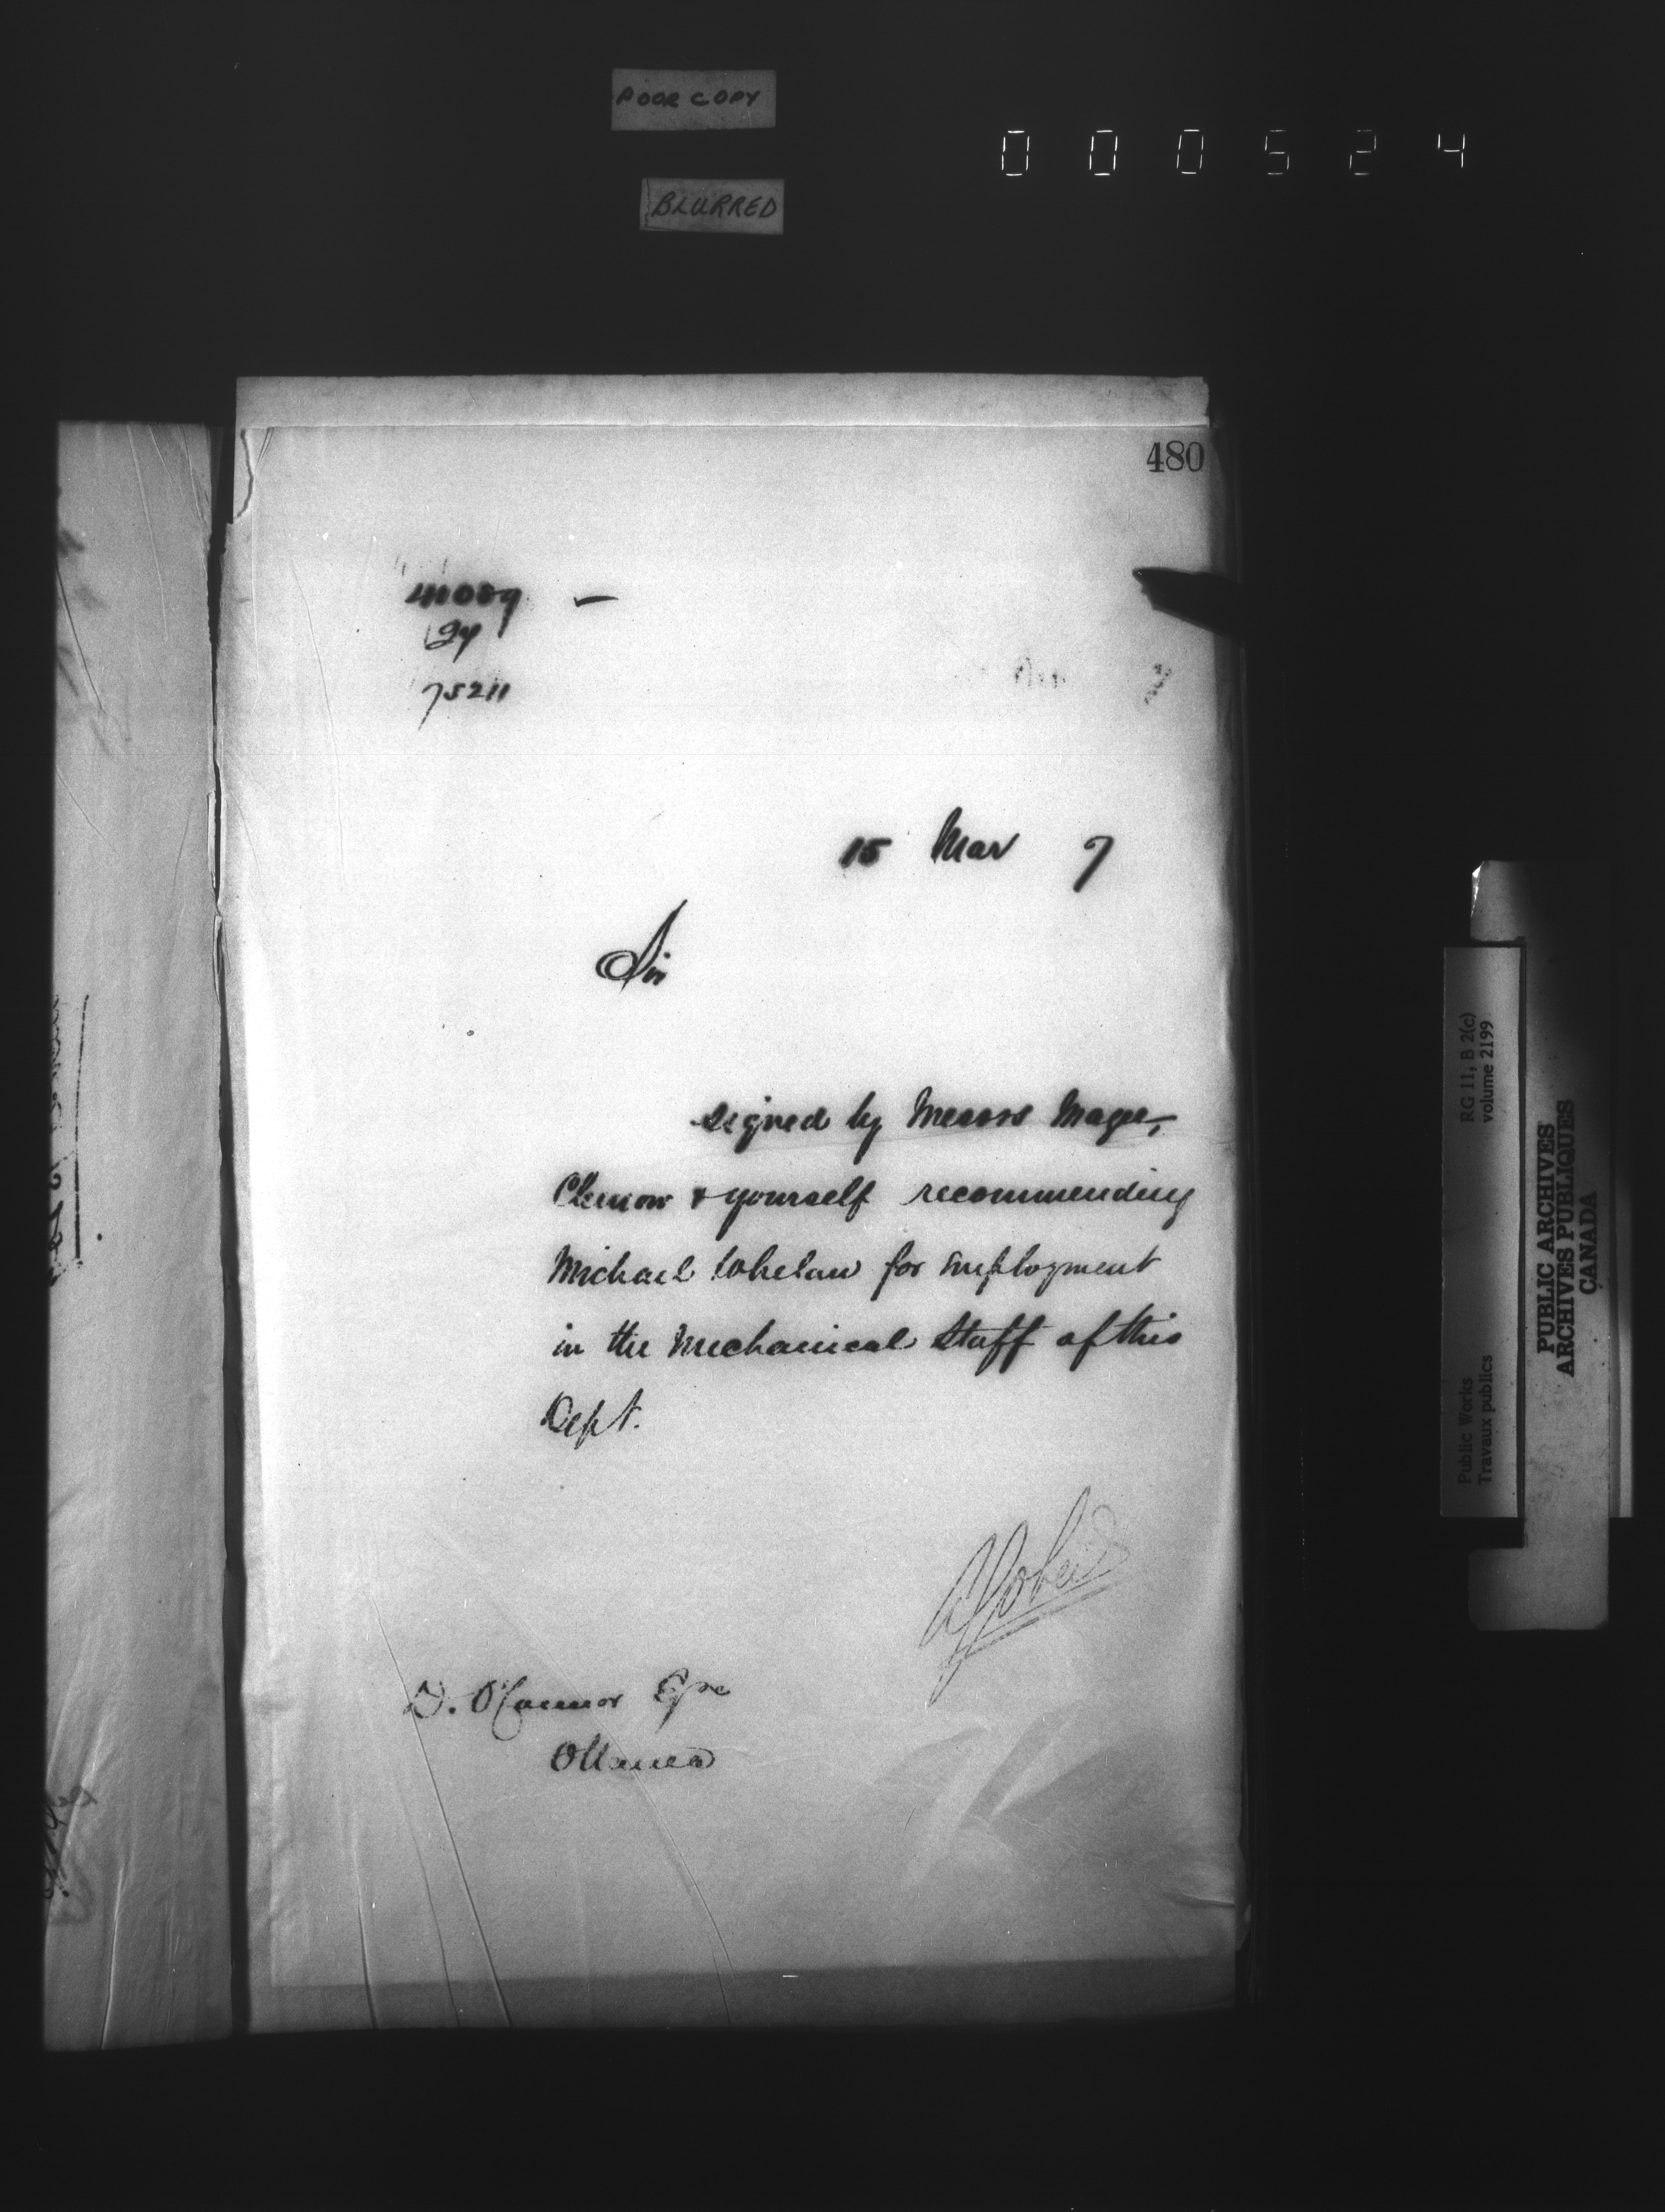 POOR COPY
000524
BLURRED
480
75211
15 Mar 7
Sir
signed by Messrs Magee,
Clemow & yourself recommending
Michael Whelan for employment
in the Mechanical Staff of this
Dept.
D. O'Connor Esqre
Ottawa
RG 11, B 2(c)
volume 2199
Public Works
Travaux publics
PUBLIC ARCHIVES
ARCHIVES PUBLIQUES
CANADA